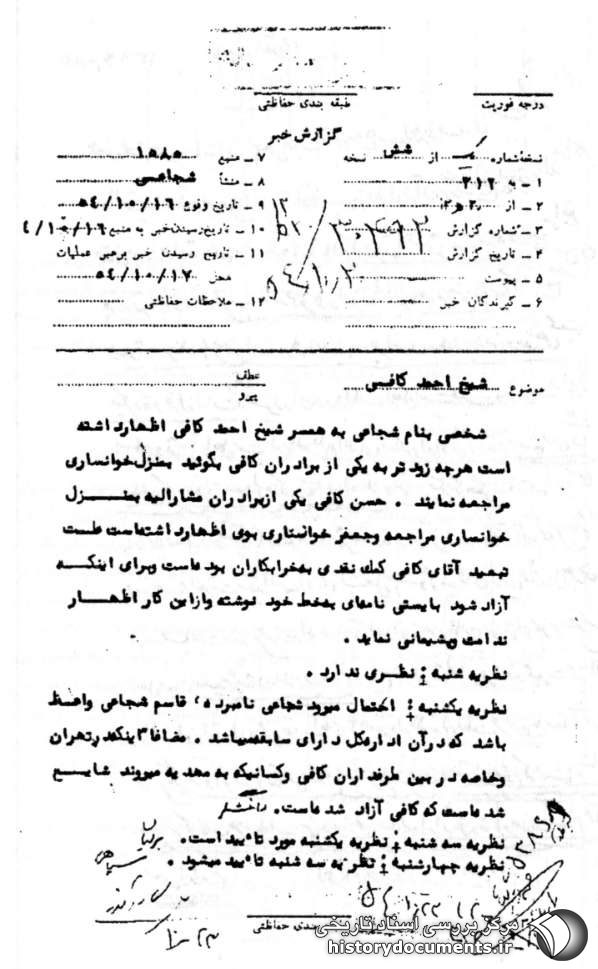 درجه فوریت
طبقه بندی حفاظتی
گزارش خبر
نسخه شماره یک از شش نسخه
۱ ـ به ۳۱۲
۲ ـ از
۳ ـ شماره گزارش
۴ ـ تاریخ گزارش
۵ ـ پیوست
۶ ـ گیرندگان خبر
۷ ـ منبع ۱۵۸۵
۸ ـ منشأ شجاعی
۹ ـ تاریخ وقوع ۵۴/۱۰/۱۶
۱۰ ـ تاریخ رسیدن خبر به منبع
۱۱ ـ تاریخ رسیدن خبر برهبر عملیات
محل ۵۴/۱۰/۱۷
۱۲ ـ ملاحظات حفاظتی
موضوع شیخ احمد کافی
عطف
پیرو
شخصی بنام شجاعی به همسر شیخ احمد کافی اظهارداشته
است هرچه زودتر به یکی از برادران کافی بگوئید بمنزل خوانساری
مراجعه نمایند . حسن کافی یکی ازبرادران مشارالیه بمنزل
خوانساری مراجعه وجعفر خوانساری بوی اظهارداشته‌است علت
تبعید آقای کافی کمک نقدی به‌خرابکاران بوده‌است وبرای اینکه
آزاد شود بایستی نامه‌ای به‌خط خود نوشته وازاین کار اظهار
ندامت وپشیمانی نماید .
نظریه شنبه : نظری ندارد .
نظریه یکشنبه : احتمال میرود شجاعی نامبرده ، قاسم شجاعی واعظ
باشد که‌درآن اداره‌کل دارای سابقه‌میباشد . مضافا" اینکه‌درتهران
وخاصه در بین طرفداران کافی وکسانیکه به مهدیه میروند شایع
شده‌است که کافی آزاد شده‌است .
نظریه سه شنبه : نظریه یکشنبه مورد تا"یید است .
نظریه چهارشنبه : نظریه سه شنبه تا"یید میشود .
طبقه بندی حفاظتی
مرکز بررسی اسناد تاریخی
historydocuments.ir